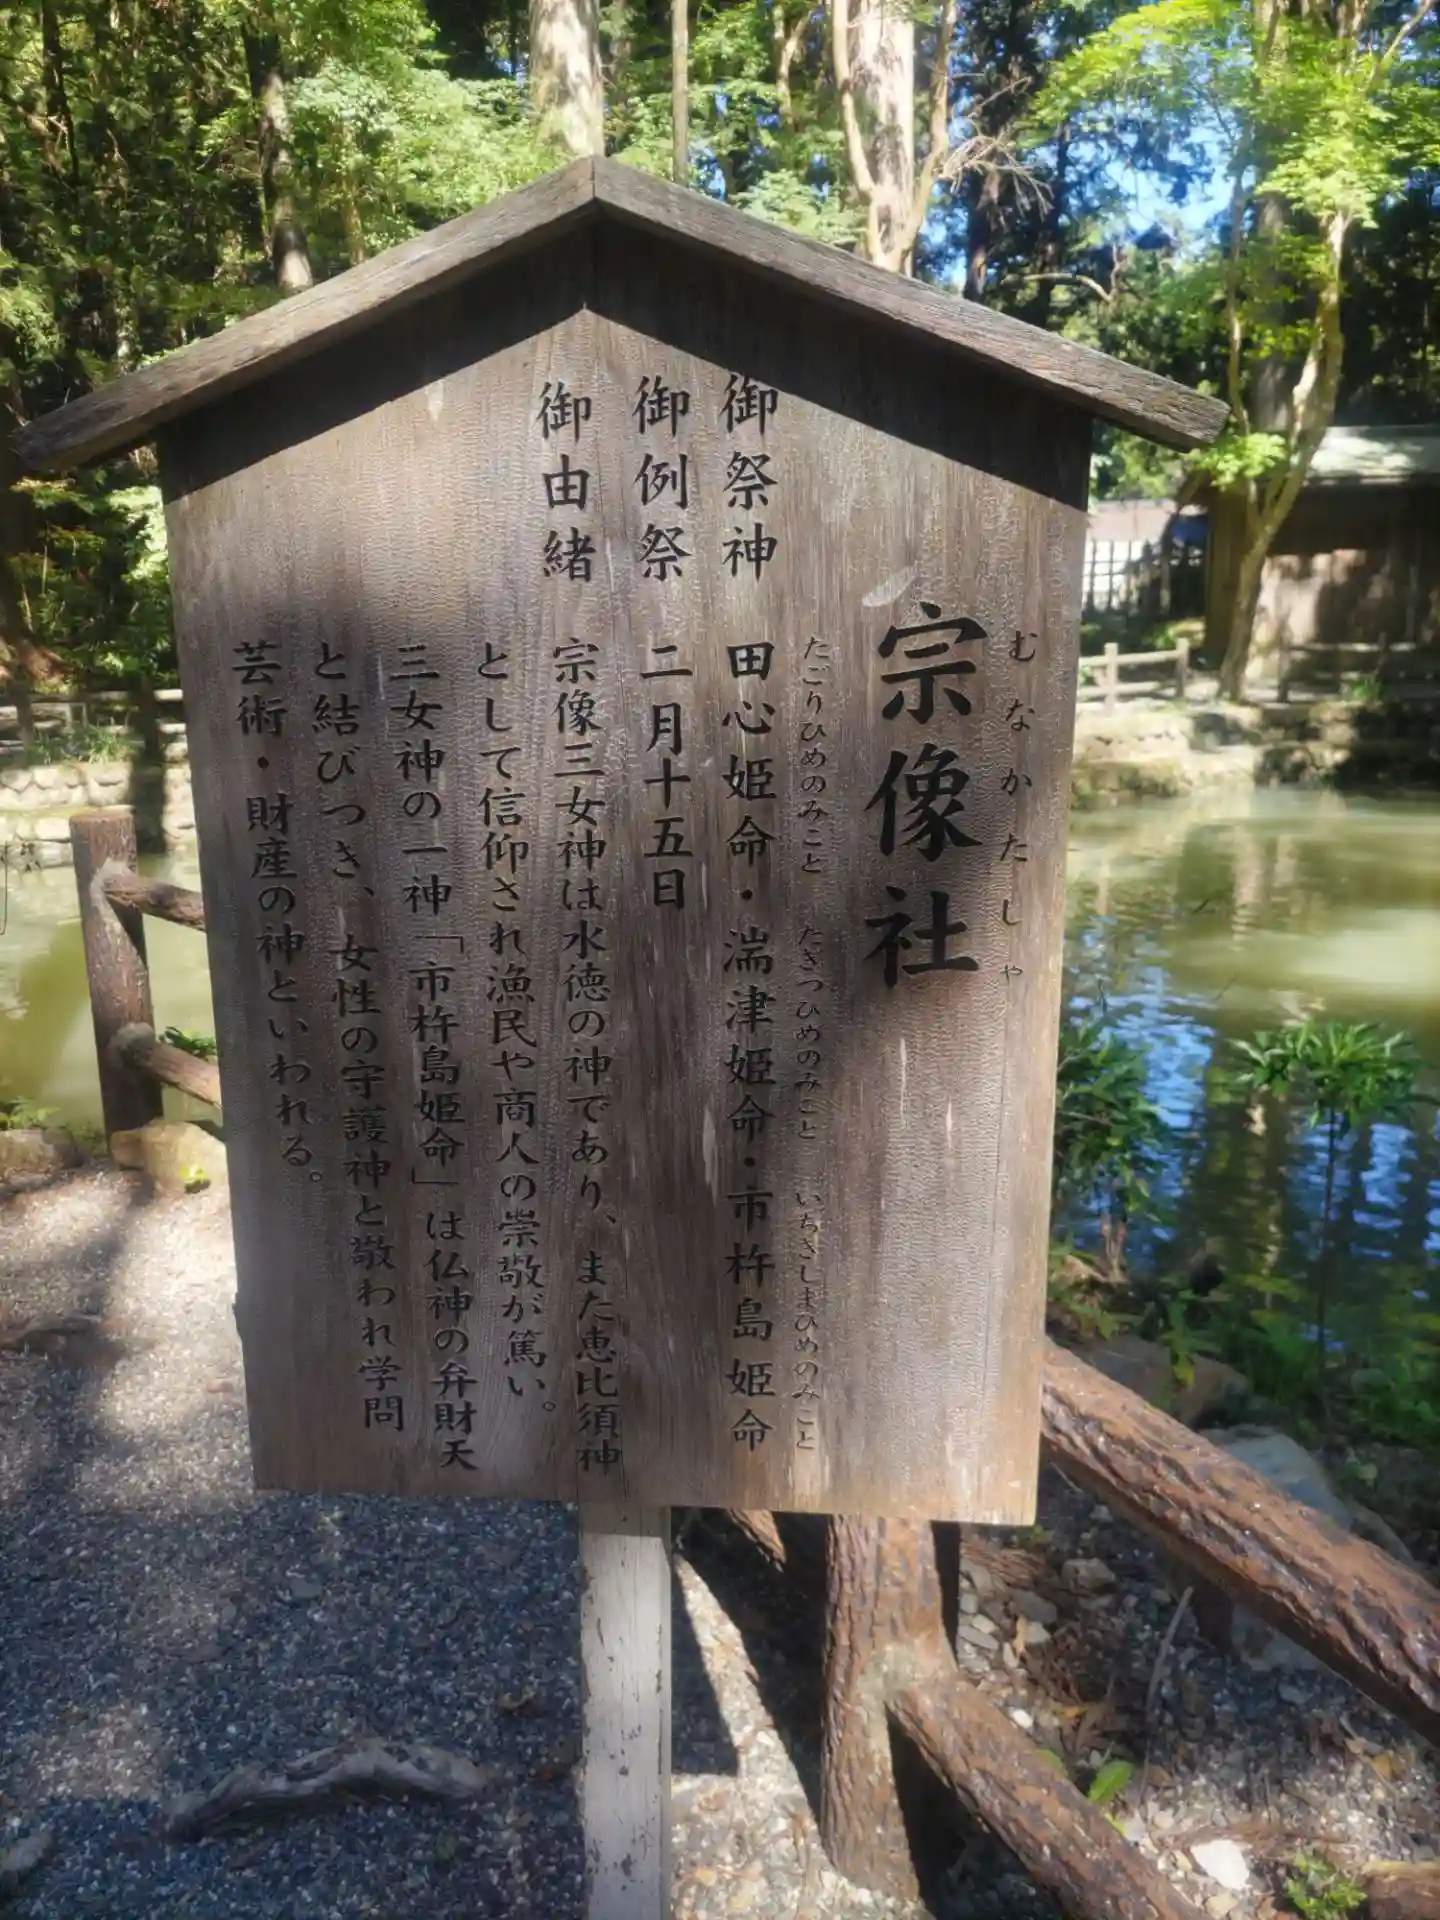 むなかたしゃ
宗像社
たごりひめのみこと　たぎつひめのみこと　いちきしまひめのみこと
御祭神　田心姫命・湍津姫命・市杵島姫命
御例祭　二月十五日
御由緒　宗像三女神は水徳の神であり、また恵比須神
として信仰され漁民や商人の崇敬が篤い。
三女神の一神「市杵島姫命」は仏神の弁財天
と結びつき、女性の守護神と敬われ学問
芸術・財産の神といわれる。